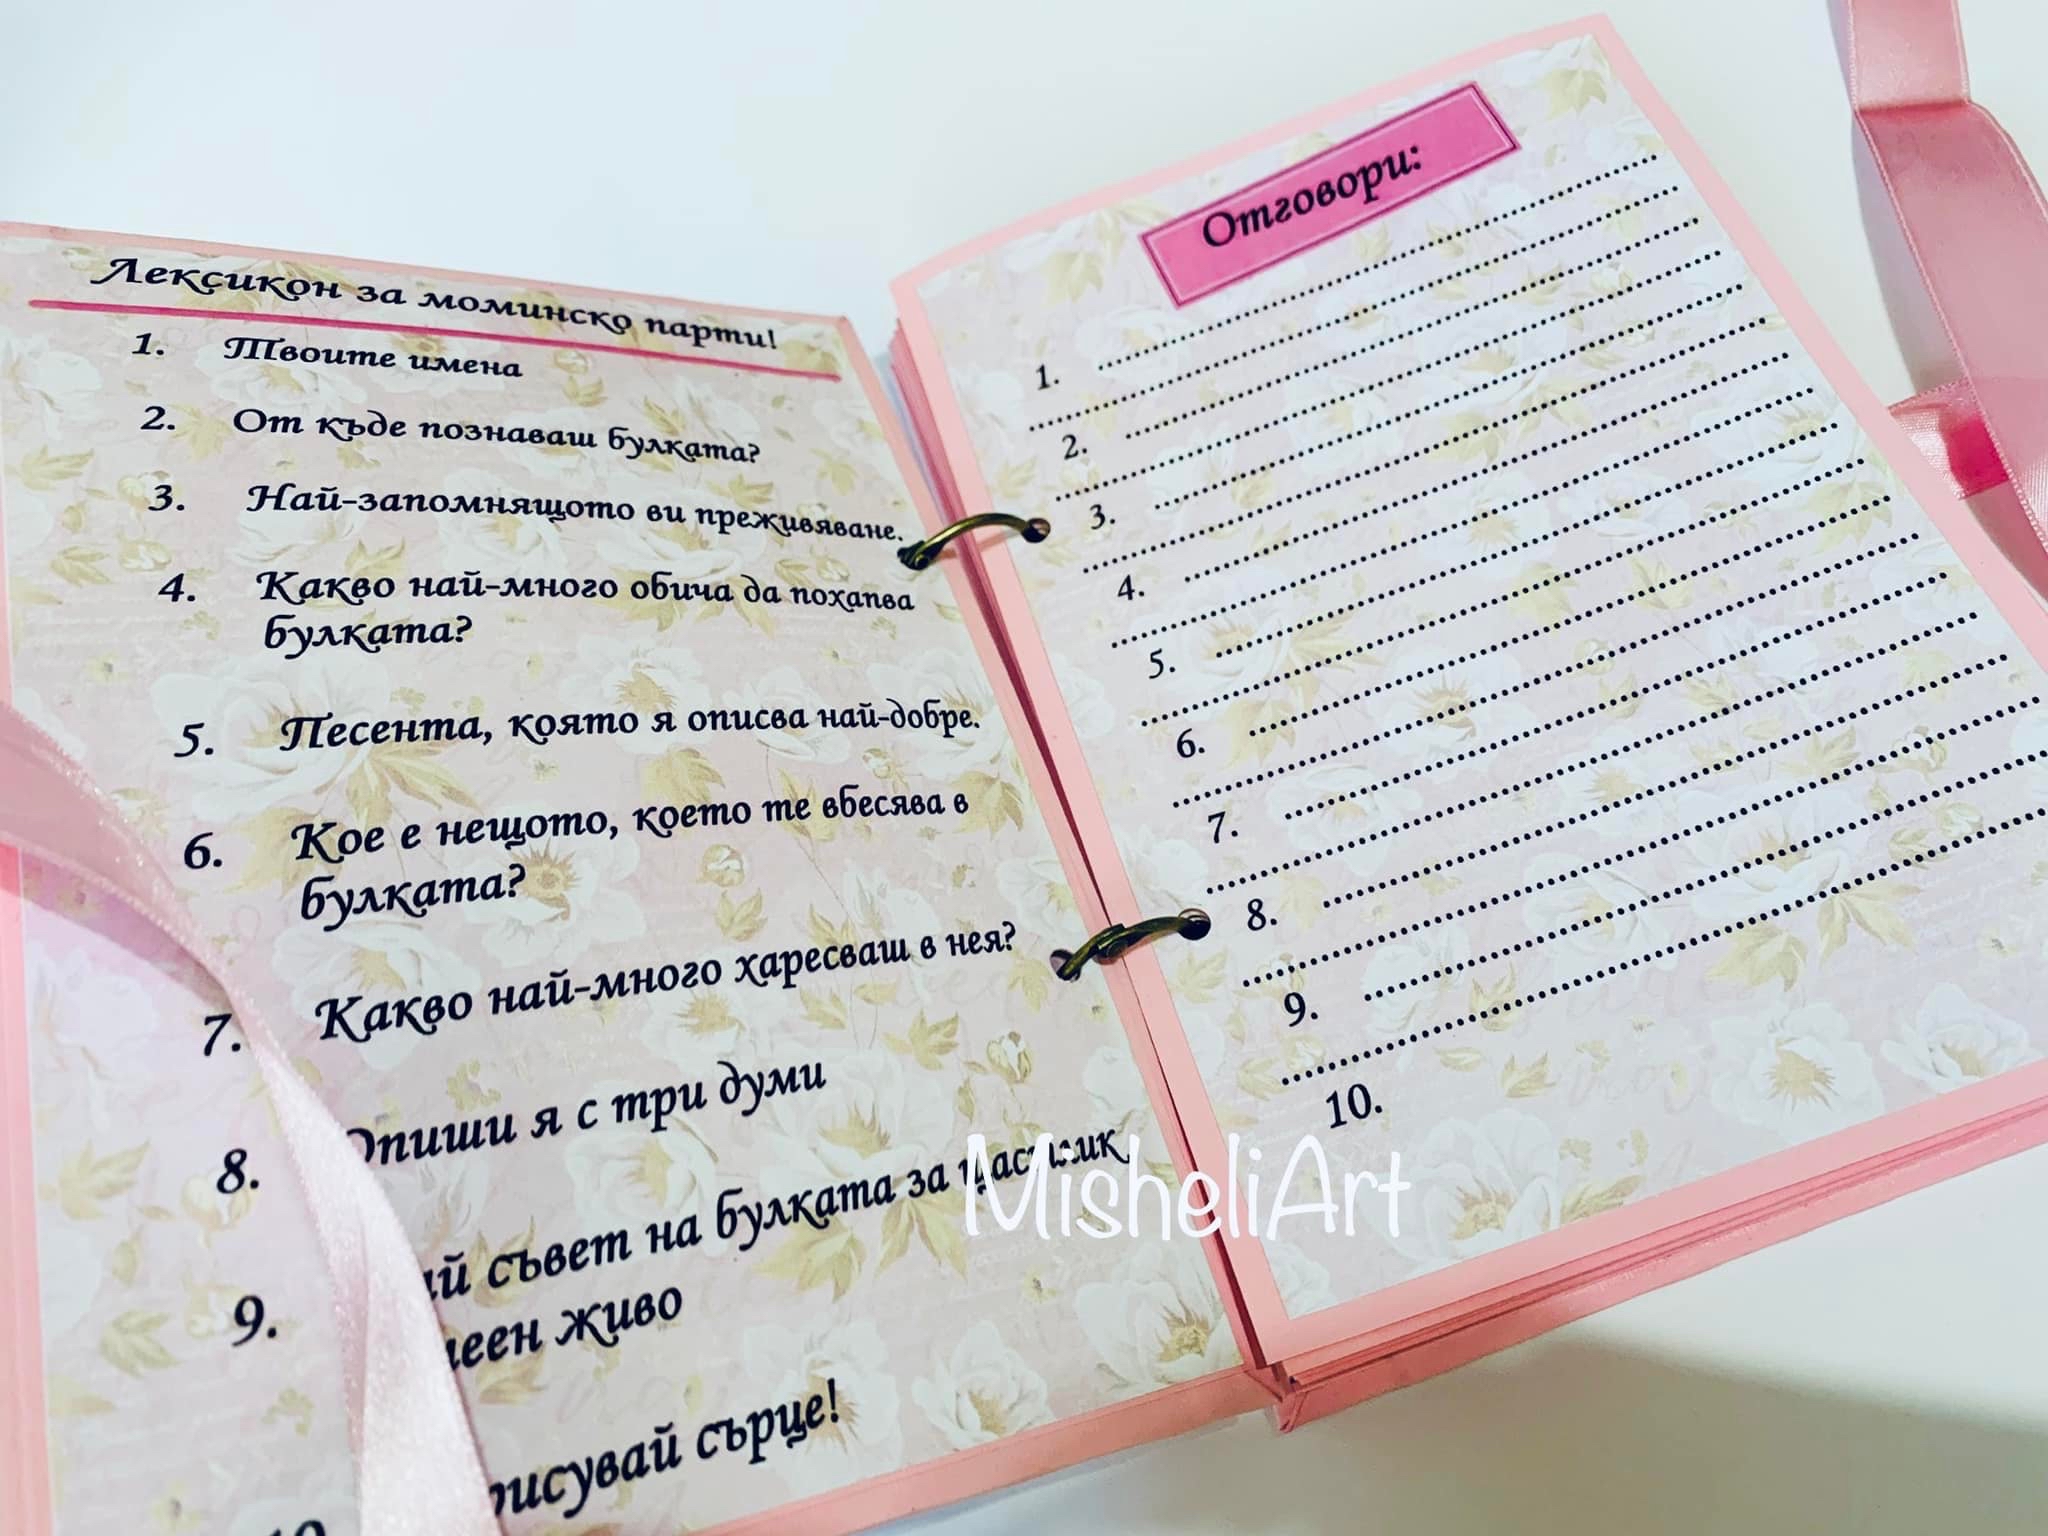 Лексикон за моминско парти!
1. Твоите имена
2. От къде познаваш булката?
3. Най-запомнящото ви преживяване.
4. Какво най-много обича да похапва
булката?
5. Песента, която я описва най-добре.
6. Кое е нещото, което те вбесява в
булката?
7. Какво най-много харесваш в нея?
8. Опиши я с три думи
9. съвет на булката за
живо
сърце!
Отговори:
1.
2.
3.
4.
5.
6.
7.
8.
9.
10.
MisheliArt